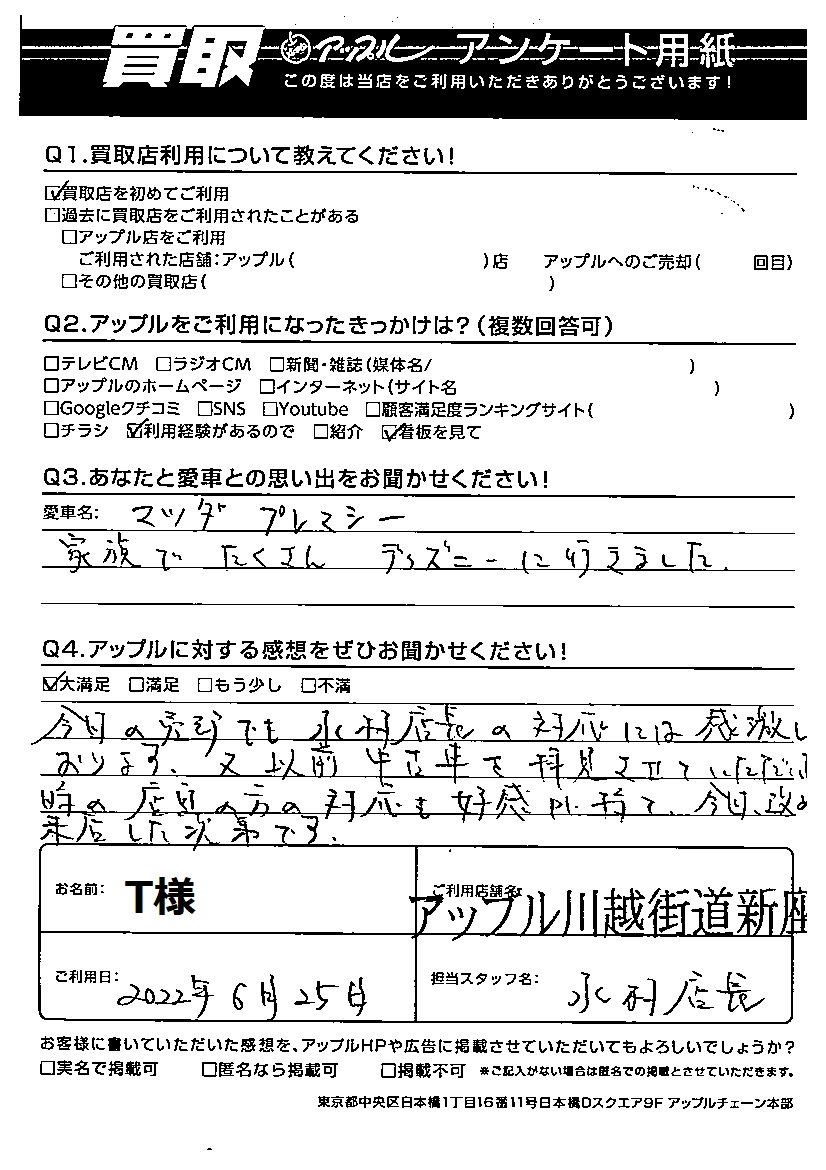 買取 アップル アンケート用紙
この度は当店をご利用いただきありがとうございます!
Q1.買取店利用について教えてください!
☑買取店を初めてご利用
□過去に買取店をご利用されたことがある
□アップル店をご利用
ご利用された店舗:アップル( )店 アップルへのご売却( 回目)
□その他の買取店( )
Q2.アップルをご利用になったきっかけは?(複数回答可)
□テレビCM □ラジオCM □新聞・雑誌(媒体名/ )
□アップルのホームページ □インターネット(サイト名 )
□Googleクチコミ □SNS □Youtube □顧客満足度ランキングサイト( )
□チラシ ☑利用経験があるので □紹介 ☑看板を見て
Q3.あなたと愛車との思い出をお聞かせください!
愛車名: マツダ プレマシー
家族で たくさん ディズニーに行きました.
Q4.アップルに対する感想をぜひお聞かせください!
☑大満足 □満足 □もう少し □不満
今日の売却でも 水村店長の対応には感激し
おります. 又以前 中古車を拝見させていただい
時の店員の方の対応も好感が持て、今日、改め
来店した次第です.
お名前: T様
ご利用店舗名:
アップル川越街道新座
ご利用日: 2022年6月25日
担当スタッフ名: 水村店長
お客様に書いていただいた感想を、アップルHPや広告に掲載させていただいてもよろしいでしょうか?
□実名で掲載可 □匿名なら掲載可 □掲載不可 ※ご記入がない場合は匿名での掲載とさせていただきます。
東京都中央区日本橋1丁目16番11号日本橋Dスクエア9F アップルチェーン本部